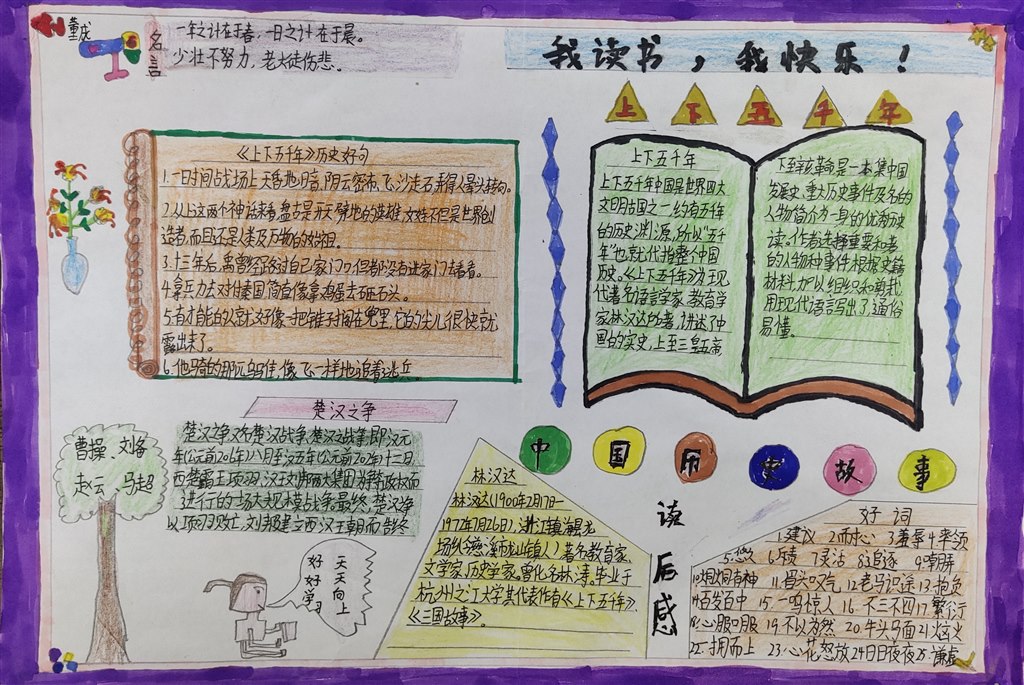 董成
名言
一年之计在于春，一日之计在于晨。
少壮不努力，老大徒伤悲。
我读书，我快乐！
上下五千年
《上下五千年》历史好句
1.一日时间战场上天昏地暗，阴云密布，飞沙走石弄得人晕头转向。
2.从上这两个神话来看，盘古是开天劈地的英雄，女娲不但是世界创
造者，而且还是人类及万物的始祖。
3.十三年后，禹曾经路过自己家门口，但都没有进家门去看看。
4.拿兵力去对付秦国简直像拿鸡蛋去砸石头。
5.有才能的人就好像一把锥子搁在兜里，它的尖儿很快就
露出来了。
6.他骑的那匹乌骓，像飞一样地追着逃兵。
上下五千年
上下五千年中国是世界四大
文明古国之一，约有五千年
的历史渊源，所以"五千
年"也就代指整个中国
历史。《上下五千年》为现
代著名语言学家、教育学
家林汉达所著，讲述了中
国的实史，上至三皇五帝，
下至辛亥革命是一本集中国
发展史、重大历史事件及名的
人物简介为一身的优秀历史
读。作者选择重要和著
的人物和事件，根据史籍
材料加以组织和剪裁
用现代语言写出了，通俗
易懂。
楚汉之争
楚汉之争又名楚汉战争、楚汉之战争，即汉元
年（公元前206年）八月至汉五年（公元前202年）十二月，
西楚霸王项羽、汉王刘邦两大集团为争夺政权而
进行的一场大规模战争。最终，楚汉之争
以项羽败亡，刘邦建立西汉王朝而告终
曹操 刘备
赵云 马超
好好学习
天天向上
中国历史故事
林汉达
林汉达（1900年2月17—
1972年7月26日），浙江镇海龙
场（今慈溪市龙山镇人）著名教育家、
文学家、历史学家。曾化名林涛，毕业于
杭州之江大学。其代表作有《上下五千年》、
《三国故事》。
读后感
好词
1.建议 2.耐心 3.羞辱 4.率领
6.歧 7.灵活 8.追逐 9.南屏
10.炯炯有神 11.昏头昏气 12.老马识途 13.抱负
14.百发百中 15.一鸣惊人 16.不三不四 17.繁衍
18.心服口服 19.不以为然 20.牛头马面 21.烟火
22.一拥而上 23.心花怒放 24.日日夜夜 25.谦虚